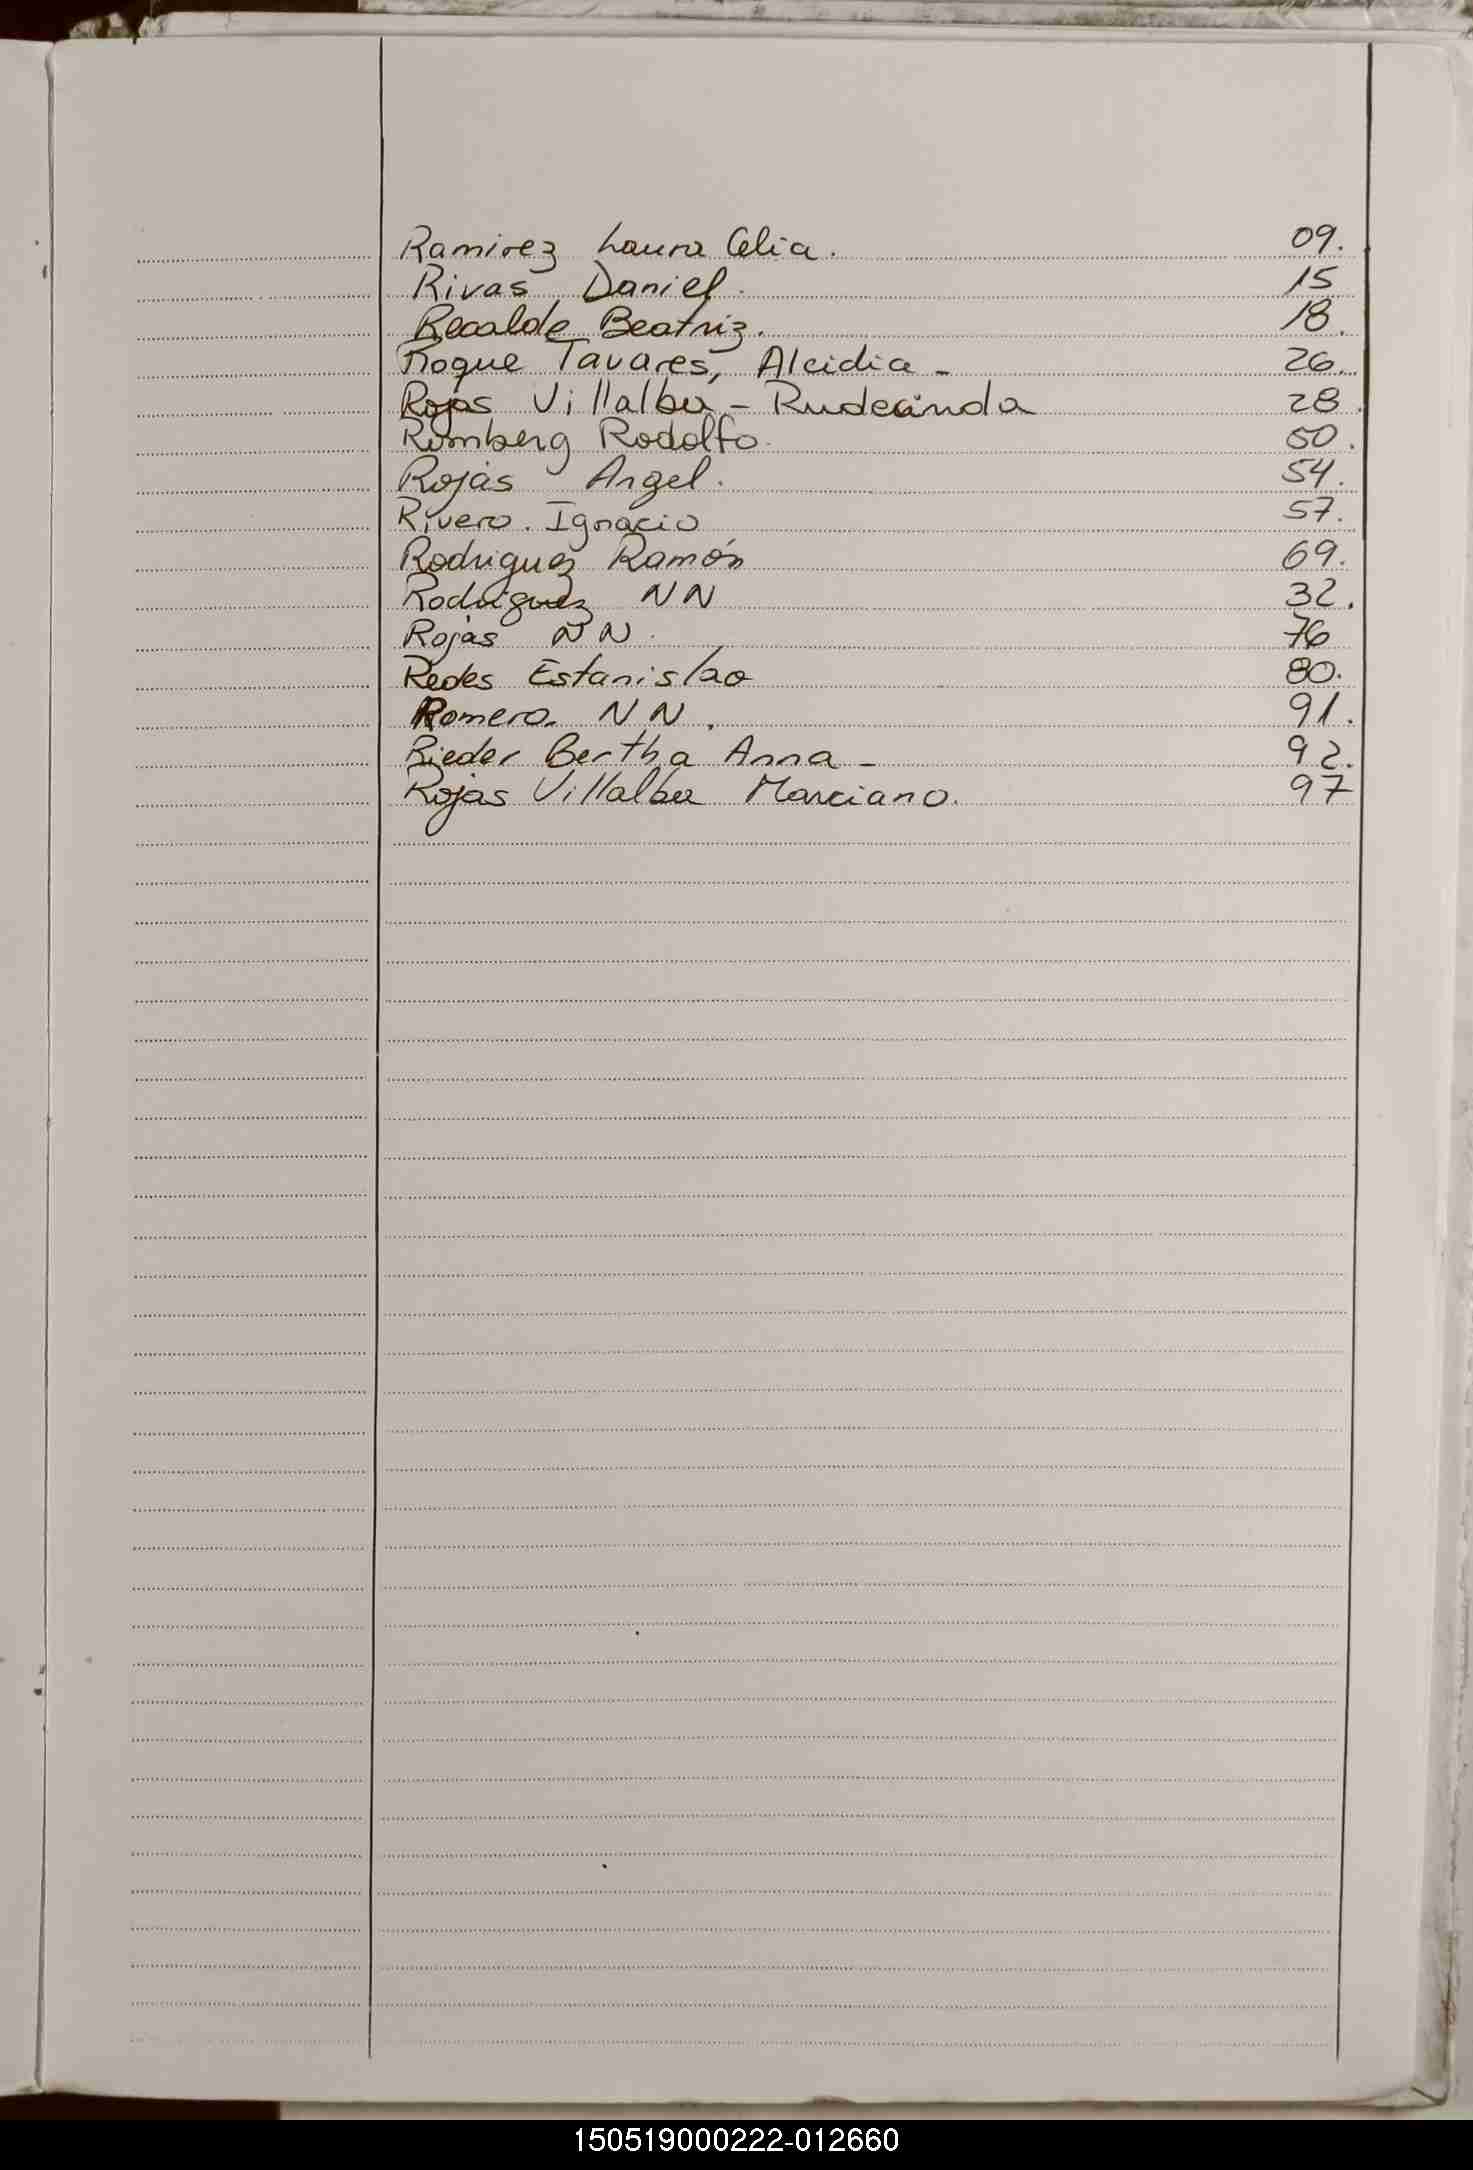 Ramirez Laura Celia. 09.
Rivas Daniel. 15
Recalde Beatriz. 18.
Roque Tavares, Alcidia - 26.
Rojas Villalba - Rudecinda 28.
Romberg Rodolfo. 50.
Rojas Angel. 54.
Rivero. Ignacio 57.
Rodriguez Ramón 69.
Rodriguez NN 32.
Rojas NN. 76
Redes Estanislao 80.
Romero. NN. 91.
Rieder Bertha Anna - 92.
Rojas Villalba Marciano. 97
150519000222-012660